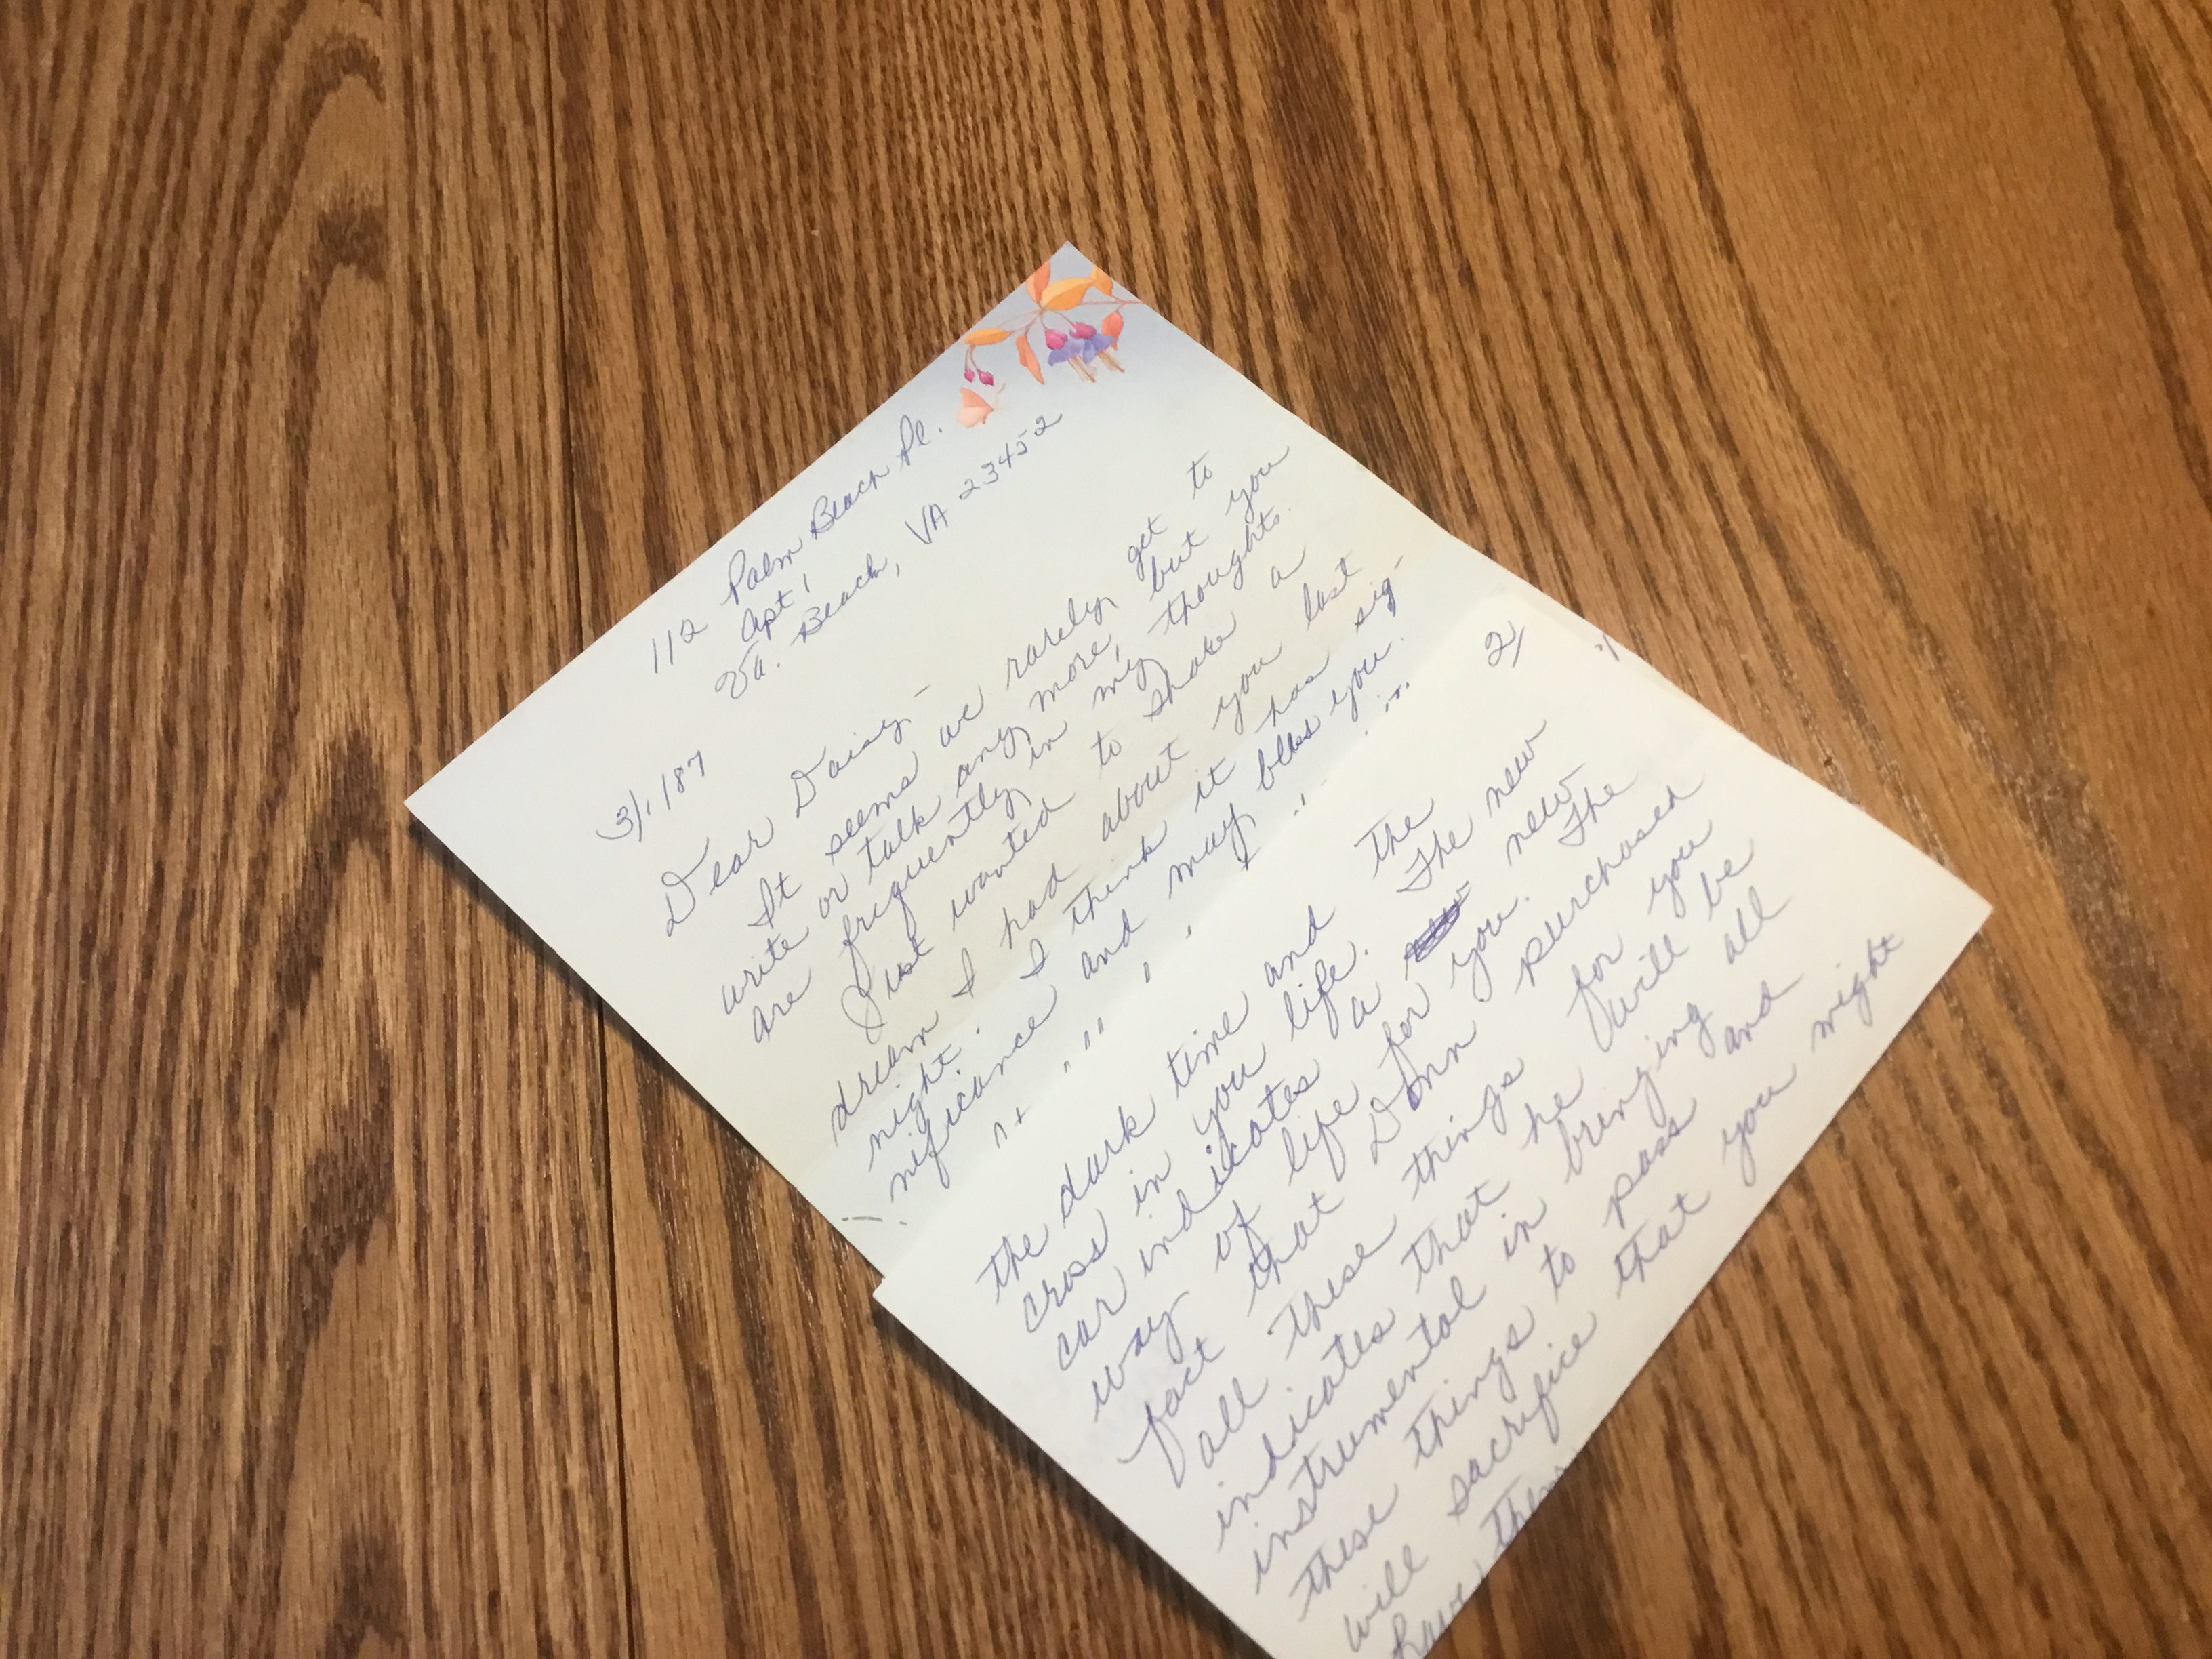 112 Palm Beach Pl.
Apt 1
Va. Beach, VA 23452
3/1/87
Dear Daisy -
It seems we rarely get to
write or talk any more, but you
are frequently in my thoughts.
Just wanted to share a
dream I had about you last
night. I think it has sig-
nificance and may bless you.
2/
the dark time and the
cross in you life. The new
car indicates a new
way of life for you. The
fact that Donn purchased
all these things for you
indicates that he will be
instrumental in bringing all
these things to pass and
will sacrifice that you might
have them